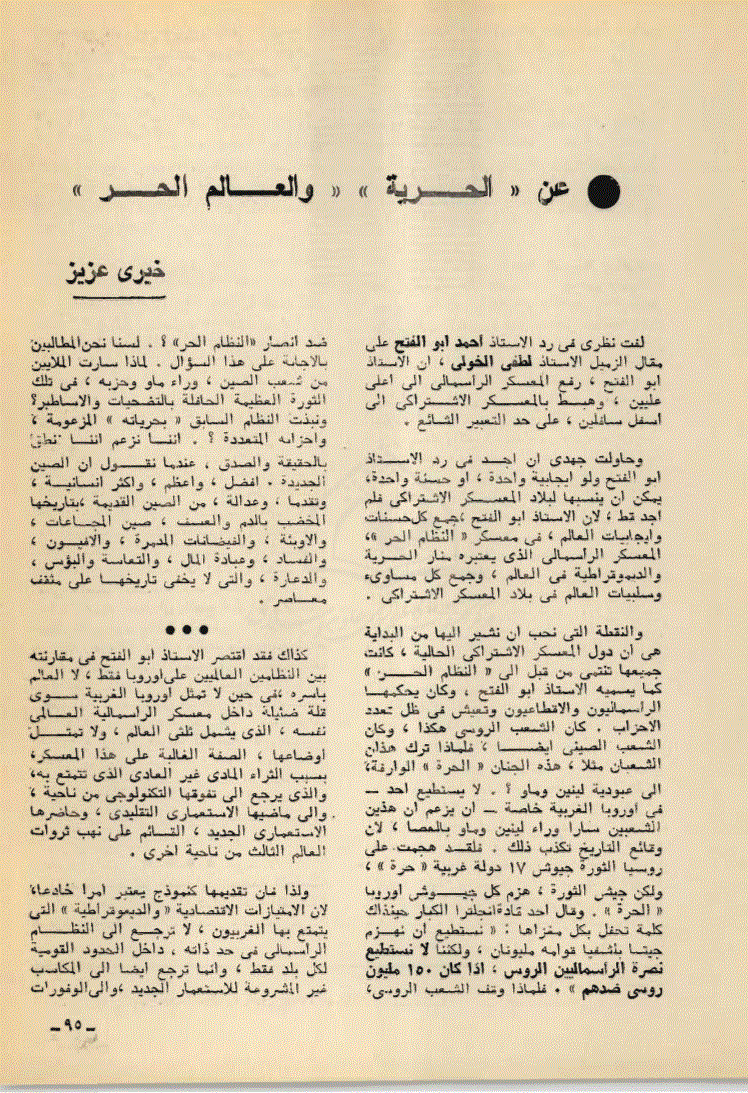 ● عن « الحرية » « والعالم الحر »
خيرى عزيز
لفت نظرى فى رد الاستاذ أحمد ابو الفتح على
مقال الزميل الاستاذ لطفى الخولى ، ان الاستاذ
ابو الفتح ، رفع المعسكر الراسمالى الى أعلى
عليين ، وهبط بالمعسكر الاشتراكى الى
أسفل سافلين ، على حد التعبير الشائع .
وحاولت جهدى ان اجد فى رد الاستاذ
ابو الفتح ولو ايجابية واحدة ، او حسنة واحدة،
يمكن ان ينسبها لبلاد المعسكر الاشتراكى فلم
اجد قط ، لان الاستاذ ابو الفتح ،جمع كل حسنات
وايجابيات العالم ، فى معسكر « النظام الحر »،
المعسكر الراسمالى الذى يعتبره منار الحرية
والديموقراطية فى العالم ، وجمع كل مساوىء
وسلبيات العالم فى بلاد المعسكر الاشتراكى .
والنقطة التى نحب ان نشير اليها من البداية
هى ان دول المعسكر الاشتراكى الحالية ، كانت
جميعها تنتمى من قبل الى « النظام الحر » ،
كما يسميه الاستاذ ابو الفتح ، وكان يحكمها
الراسماليون والاقطاعيون وتعيش فى ظل تعدد
الاحزاب . كان الشعب الروسى هكذا ، وكان
الشعب الصينى ايضا ، فلماذا ترك هذان
الشعبان مثلا ، هذه الجنان « الحرة » الوارفة،
الى عبودية لينين وماو ؟ . لا يستطيع احد —
فى أوروبا الغربية خاصة — ان يزعم ان هذين
الشعبين سارا وراء لينين وماو بالعصا ، لان
وقائع التاريخ تكذب ذلك . فلقد هجمت على
روسيا الثورة جيوش ١٧ دولة غربية « حرة » ،
ولكن جيش الثورة ، هزم كل جيوش اوروبا
« الحرة » . وقال احد قادة انجلترا الكبار حينذاك
كلمة تحفل بكل مغزاها : « نستطيع ان نهزم
جيشا بلشفيا قوامه مليونان ، ولكننا لا نستطيع
نصرة الراسماليين الروس ، اذا كان ١٥٠ مليون
روسى ضدهم » . فلماذا وقف الشعب الروسى،
ضد انصار «النظام الحر» ؟ . لسنا نحن المطالبين
بالاجابة على هذا السؤال . لماذا سارت الملايين
من شعب الصين ، وراء ماو وحزبه ، فى تلك
الثورة العظيمة الحافلة بالتضحيات والاساطير؟
ونبذت النظام السابق « بحرياته » المزعومة ،
واحزابه المتعددة ؟ . اننا نزعم اننا ننطق
بالحقيقة والصدق ، عندما نقول ان الصين
الجديدة ، افضل ، واعظم ، واكثر انسانية ،
وتقدما ، وعدالة ، من الصين القديمة ،بتاريخها
المخضب بالدم والعسف ، صين المجاعات ،
والاوبئة ، والفيضانات المدمرة ، والافيون ،
والفساد ، وعبادة المال ، والتعاسة والبؤس ،
والدعارة ، والتى لا يخفى تاريخها على مثقف
معاصر .
● ● ●
كذلك فقد اقتصر الاستاذ ابو الفتح فى مقارنته
بين النظامين العالميين على اوروبا فقط ، لا العالم
باسره ،فى حين لا تمثل أوروبا الغربية سوى
قلة ضئيلة داخل معسكر الراسمالية العالمى
نفسه ، الذى يشمل ثلثى العالم ، ولا تمثل
اوضاعها ، الصفة الغالبة على هذا المعسكر،
بسبب الثراء المادى غير العادى الذى تتمتع به،
والذى يرجع الى تفوقها التكنولوجى من ناحية ،
والى ماضيها الاستعمارى التقليدى ، وحاضرها
الاستعمارى الجديد ، القائم على نهب ثروات
العالم الثالث من ناحية اخرى .
ولذا فان تقديمها كنموذج يعتبر امرا خادعا،
لان الامتيازات الاقتصادية « والديموقراطية » التى
يتمتع بها الغربيون ، لا ترجع الى النظام
الراسمالى فى حد ذاته ، داخل الحدود القومية
لكل بلد فقط ، وانما ترجع ايضا الى المكاسب
غير المشروعة للاستعمار الجديد ،والى الوفورات
ـ ٩٥ ـ